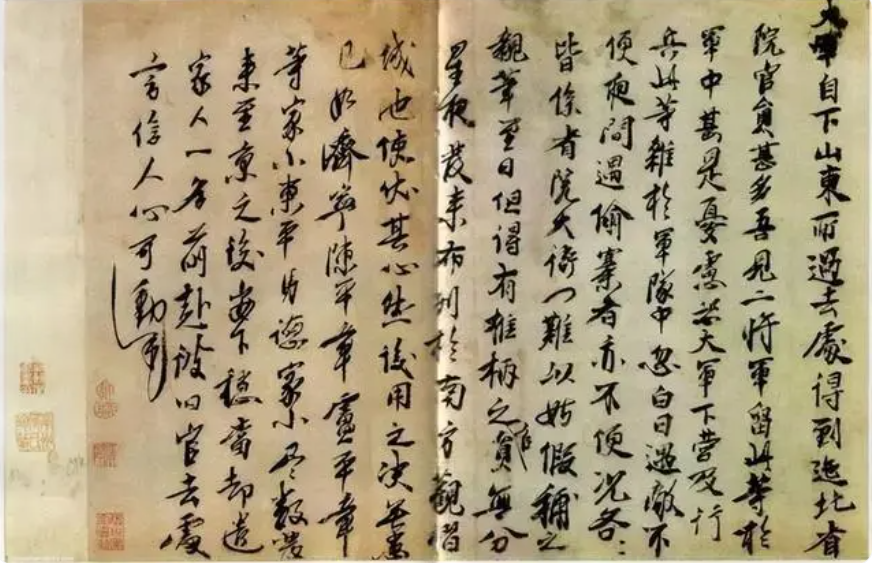 大軍自下山東所過去處得到迤北省
院官員甚多吾見二將軍留此等於
軍中甚是憂慮恐大軍下營及行
兵此等雜於軍隊中忽白日遇敵不
便夜間遇偷寨者亦不便況各各
皆係省院大衙门難以姑假補之
親筆至日但得有椎柄之官員無分
星夜發来布列於南方觀
城池使伏其心然後用之決無患
已如濟寧陳平章盧平章
等家小東平馬德家小尽數發
来至京之後安下穩當却遣
家人一名前赴彼旧官去處
言信人心可動